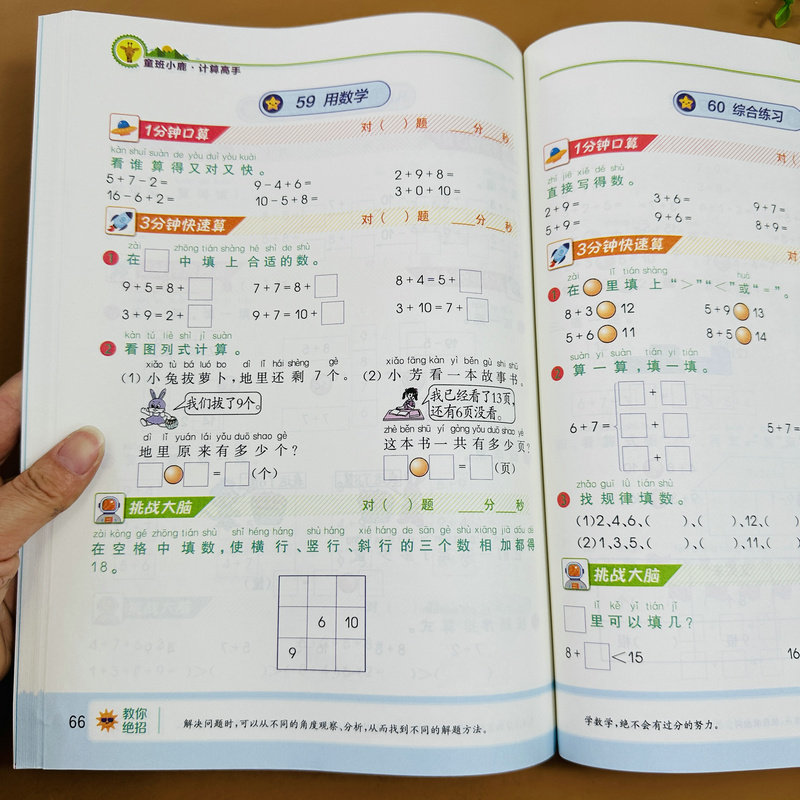 童班小鹿·计算高手
59 用数学
1分钟口算 对( )题 ___分___秒
kàn shuí suàn de yòu duì yòu kuài
看谁算得又对又快。
5+7-2= 9-4+6= 2+9+8=
16-6+2= 10-5+8= 3+0+10=
3分钟快速算 对( )题 ___分___秒
zài zhōng tián shàng hé shì de shù
1 在□中填上合适的数。
9+5=8+□ 7+7=8+□ 8+4=5+□
3+9=2+□ 9+7=10+□ 3+10=7+□
kàn tú liè shì jì suàn
2 看图列式计算。
xiǎo tù bá luó bo dì lǐ hái shèng gè
(1)小兔拔萝卜,地里还剩7个。
我们拔了9个。
dì lǐ yuán lái yǒu duō shao gè
地里原来有多少个?
□○□=□(个)
xiǎo fāng kàn yì běn gù shi shū
(2)小芳看一本故事书。
我已经看了13页,
还有6页没看。
zhè běn shū yí gòng yǒu duō shao yè
这本书一共有多少页?
□○□=□(页)
挑战大脑 对( )题 ___分___秒
zài kòng gé zhōng tián shù shǐ héng háng shù háng xié háng de sān gè shù xiāng jiā dōu dé
在空格中填数,使横行、竖行、斜行的三个数相加都得
18。
6 10
9
66 教你
绝招
解决问题时,可以从不同的角度观察、分析,从而找到不同的解题方法。
60 综合练习
1分钟口算 对(
zhí jiē xiě dé shù
直接写得数。
2+9= 3+6= 9+7=
5+9= 9+6= 8+9=
3分钟快速算 对
zài lǐ tián shàng huò
1 在○里填上“>”“<”或“=”。
8+3○12 5+9○13
5+6○11 8+5○14
suàn yi suàn tián yi tián
2 算一算,填一填。
□+□
6+7= □+□ 5+7=
□+□
zhǎo guī lǜ tián shù
3 找规律填数。
(1)2、4、6、( )、( )、12、(
(2)1、3、5、( )、( )、11、(
挑战大脑
lǐ kě yǐ tián jǐ
□里可以填几?
8+□<15 16
学数学,绝不会有过分的努力。